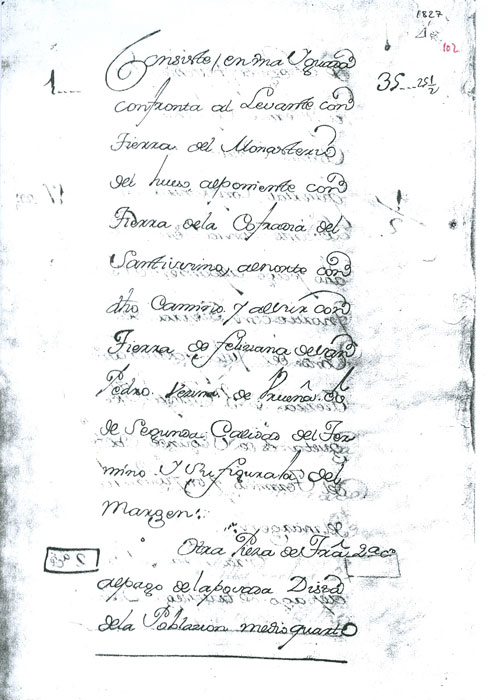 1827
102
1
Consiste en una Yguada
35 25 1/2
confronta al Levante con
Tierra del Monasterio
del hueso al poniente con
Tierra de la Cofradia del
Santissimo, al norte con
dho Camino y al sur con
Tierra de feliziana de san
Pedro vezina de
de Segunda Calidad del Ter
mino. Y su figura la del
Margen:
Otra Pieza de Trâ
al pago de la Dista
de la Poblazion medio quarto